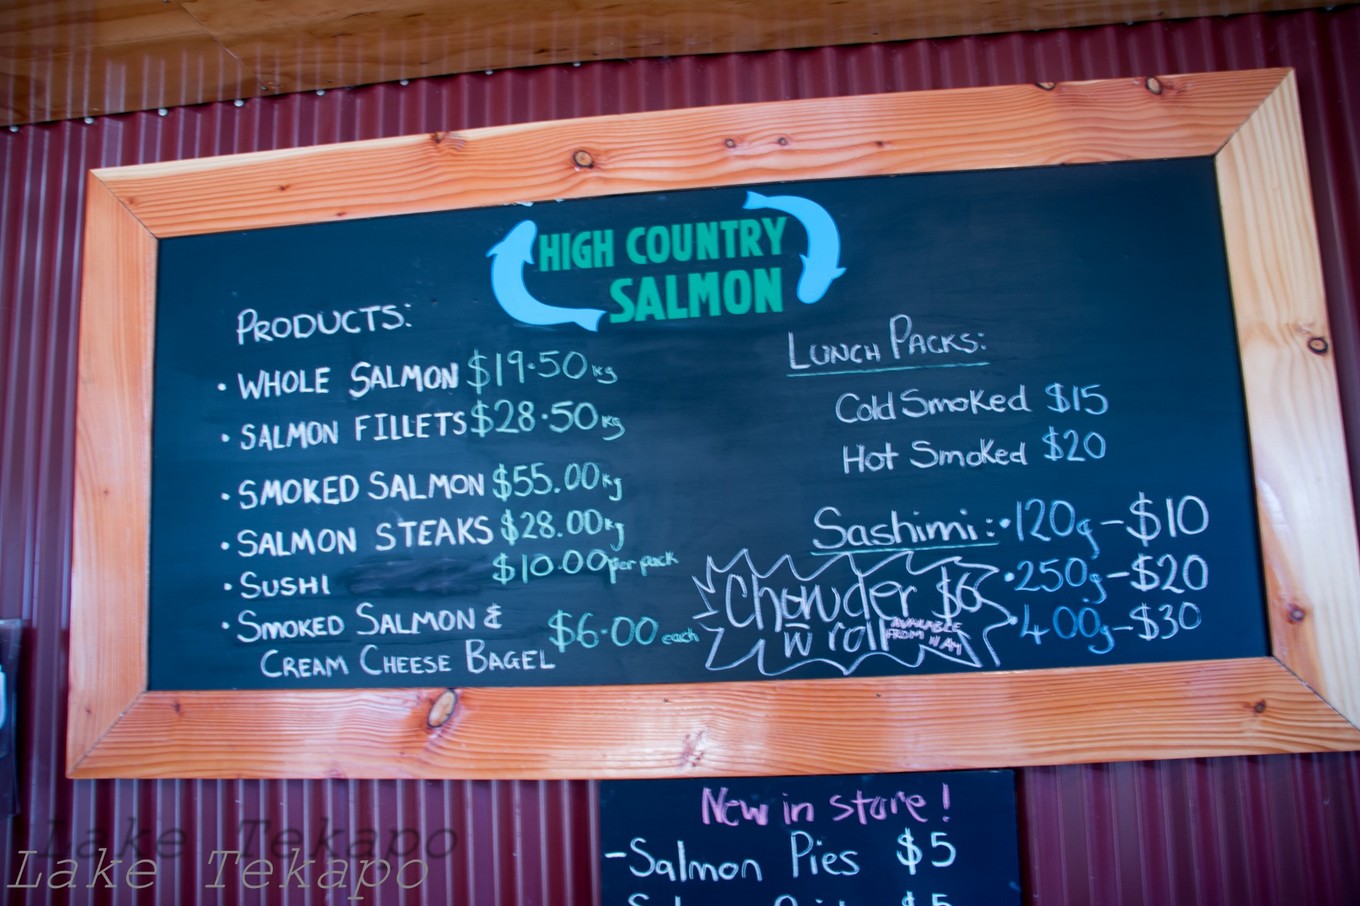 HIGH COUNTRY
SALMON
PRODUCTS:
• WHOLE SALMON $19.50 kg
• SALMON FILLETS $28.50 kg
• SMOKED SALMON $55.00 kg
• SALMON STEAKS $28.00 kg
• SUSHI $10.00 per pack
• SMOKED SALMON &
CREAM CHEESE BAGEL $6.00 each
LUNCH PACKS:
Cold Smoked $15
Hot Smoked $20
Sashimi: • 120g - $10
• 250g - $20
• 400g - $30
Chowder $6
w roll
AVAILABLE
FROM 11 AM
New in store!
- Salmon Pies $5
$5
Lake Tekapo